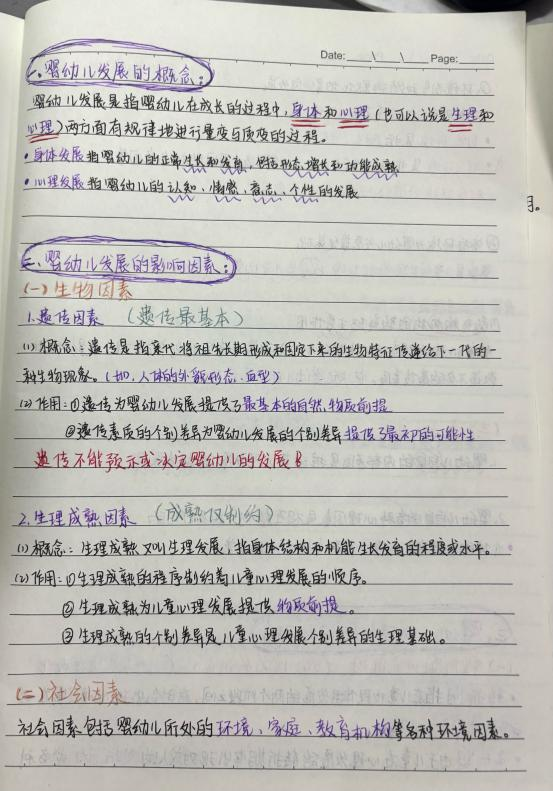 Date: Page:
一、婴幼儿发展的概念：
婴幼儿发展是指婴幼儿在成长的过程中，身体和心理（也可以说是生理和
心理）两方面有规律地进行量变与质变的过程。
·身体发展指婴幼儿的正常生长和发育，包括形态增长和功能成熟
·心理发展指婴幼儿的认知、情感、意志、个性的发展
二、婴幼儿发展的影响因素：
(一)生物因素
1.遗传因素（遗传最基本）
(1)概念：遗传是指亲代将祖先长期形成和固定下来的生物特征传递给下一代的一
种生物现象。（如，人体的外貌形态、血型）
(2)作用：①遗传为婴幼儿发展提供了最基本的自然物质前提
②遗传素质的个别差异为婴幼儿发展的个别差异提供了最初的可能性
遗传不能预示或决定婴幼儿的发展
2.生理成熟因素（成熟仅制约）
(1)概念：生理成熟又叫生理发展，指身体结构和机能生长发育的程度或水平。
(2)作用：①生理成熟的程序制约着儿童心理发展的顺序。
②生理成熟为儿童心理发展提供物质前提。
③生理成熟的个别差异是儿童心理发展个别差异的生理基础。
(二)社会因素
社会因素包括婴幼儿所处的环境、家庭、教育机构等各种环境因素。